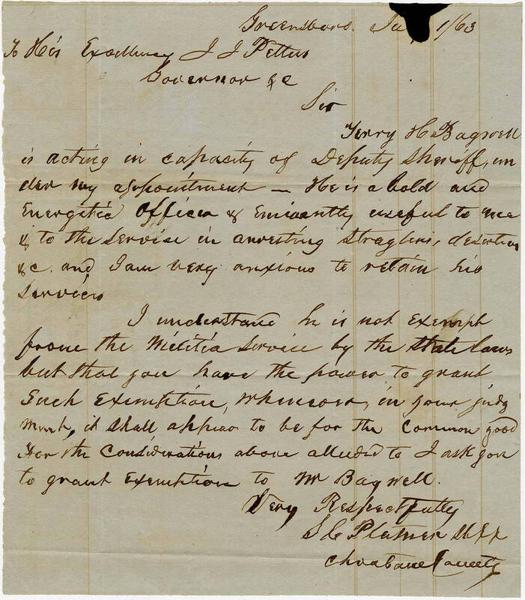 Greensboro. Ja 1/63
To His Excellency J J Pettus
Governor &c
Sir
Terry H Bagwell
is acting in capacity of Deputy Sheriff, un
der my appointment — He is a bold and
Energetic Officer & Eminently useful to me
& to the Service in arresting Straglers, deserters
&c. and I am very anxious to retain his
Services
I understand he is not Exempt
from the Melitia Service by the State laws
but that you have the power to grant
Such Exemption, Whenever, in your judg
ment, it shall appear to be for the Common good
For the Considerations above alluded to I ask you
to grant Exemption to Mr Bagwell.
Very Respectfully
S C Shff
Choctaw County